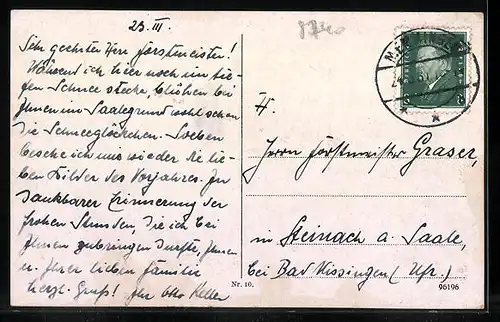 23. III.
Sehr geehrter Herr Forstmeister!
Während ich hier noch im tie-
fen Schnee stecke, blühen bei
Ihnen im Saalegrund wohl schon
die Schneeglöckchen. Soeben
besehe ich mir wieder die lie-
ben Bilder des Vorjahres. In
dankbarer Erinnerung der
frohen Stunden, die ich bei
Ihnen zubringen durfte, Ihnen
u. Ihrer lieben Familie
herzl. Gruß! Ihr Otto Keller
8740
H.
Herrn Forstmeister Graser,
in Steinach a. Saale,
bei Bad Kissingen (Ufr.)
Nr. 10.
96196
8